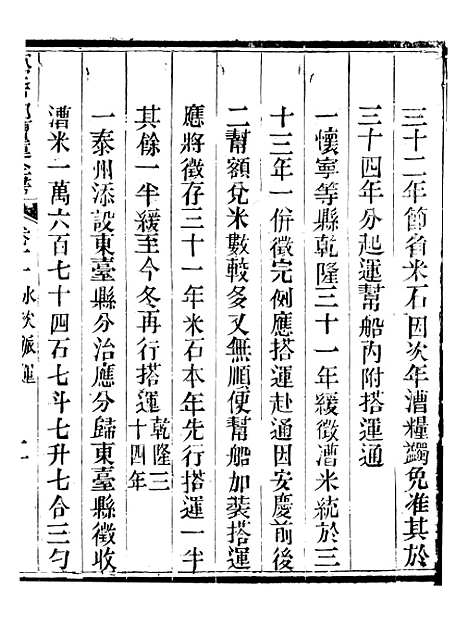 三十二年節省米石因次年漕糧蠲免准其於
三十四年分起運幫船內附搭運通
一懷寧等縣乾隆三十一年緩徵漕米統於三
十三年一併徵完例應搭運赴通因安慶前後
二幫額兌米數較多又無順便幫船加裝搭運
應將徵存三十一年米石本年先行搭運一半
其餘一半緩至今冬再行搭運乾隆三十四年
一泰州添設東臺縣分治應分歸東臺縣徵收
漕米一萬六百七十四石七斗七升七合三勺